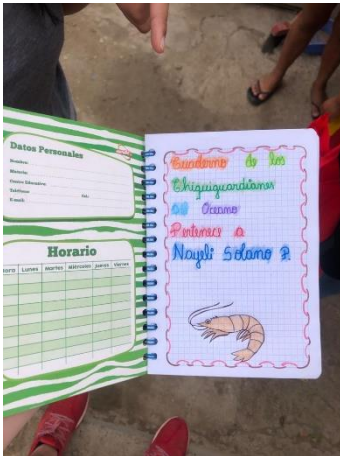 Datos Personales
Nombre:
Materia:
Centro Educativo:
Teléfono:
E-mail:
Horario
Hora Lunes Martes Miércoles Jueves Viernes
Cuaderno de los
Chiquiguardianes
del Oceano
Pertenece a
Nayeli Solano P.